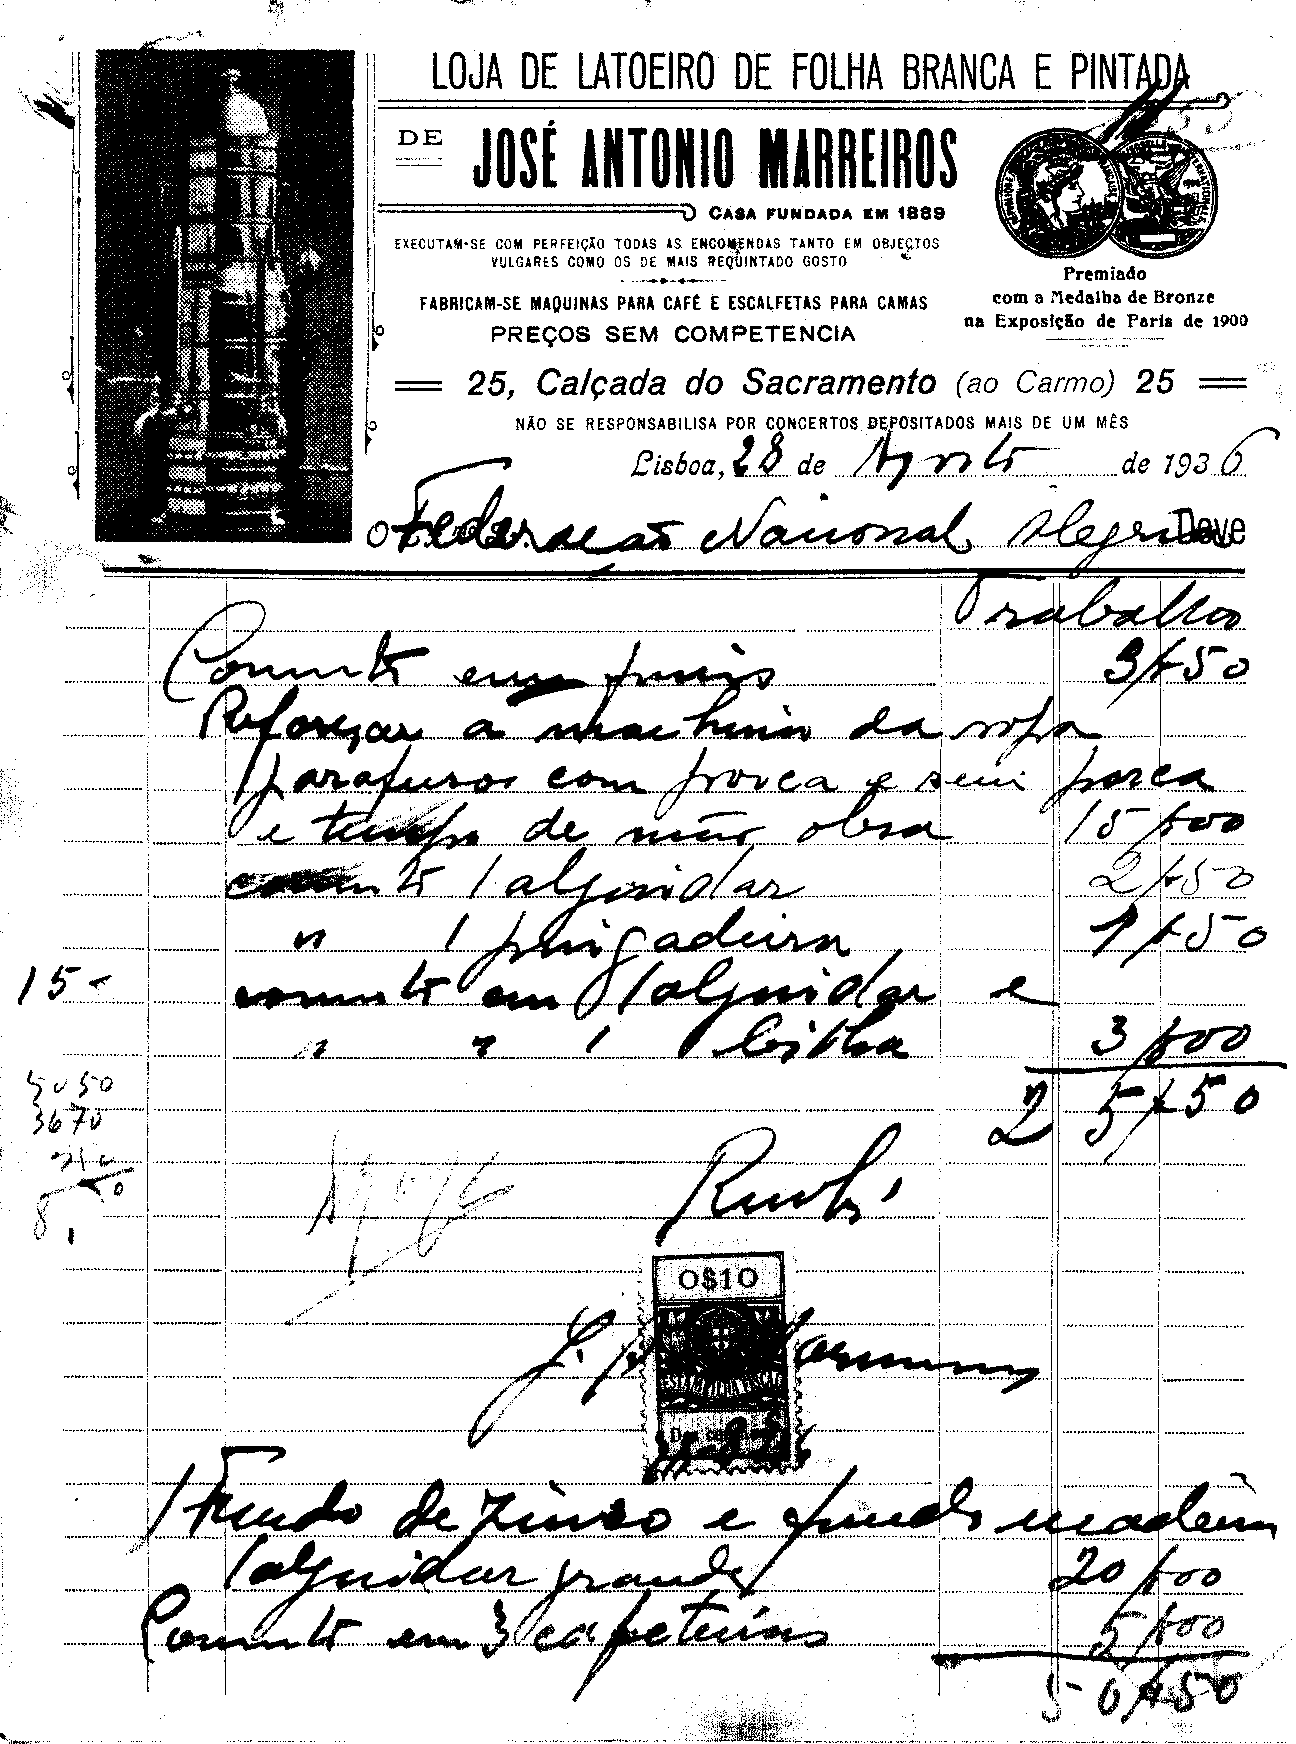 LOJA DE LATOEIRO DE FOLHA BRANCA E PINTADA
DE JOSÉ ANTONIO MARREIROS
CASA FUNDADA EM 1889
EXECUTAM-SE COM PERFEIÇÃO TODAS AS ENCOMENDAS TANTO EM OBJECTOS
VULGARES COMO OS DE MAIS REQUINTADO GOSTO
FABRICAM-SE MAQUINAS PARA CAFÉ E ESCALFETAS PARA CAMAS
PREÇOS SEM COMPETENCIA
Premiado
com a Medalha de Bronze
na Exposição de Paris de 1900
25, Calçada do Sacramento (ao Carmo) 25
NÃO SE RESPONSABILISA POR CONCERTOS DEPOSITADOS MAIS DE UM MÊS
Lisboa, 28 de Agosto de 1936
Federação Nacional Alegri Deve
Trabalho
em 3$50
Reforçar a machina da sopa
parafusos com porca e sem porca
e tempo de mão obra 15$00
1 alguidar 2$50
" 1 1$50
15-
em 1 alguidar e
" " 1 bilha 3$00
25$50
5050
3670
Recebi
0$10
J.
1 Fundo de zinco e fundo madeira
1 alguidar grande 20$00
em 3 cafeteiras 5$00
50$50